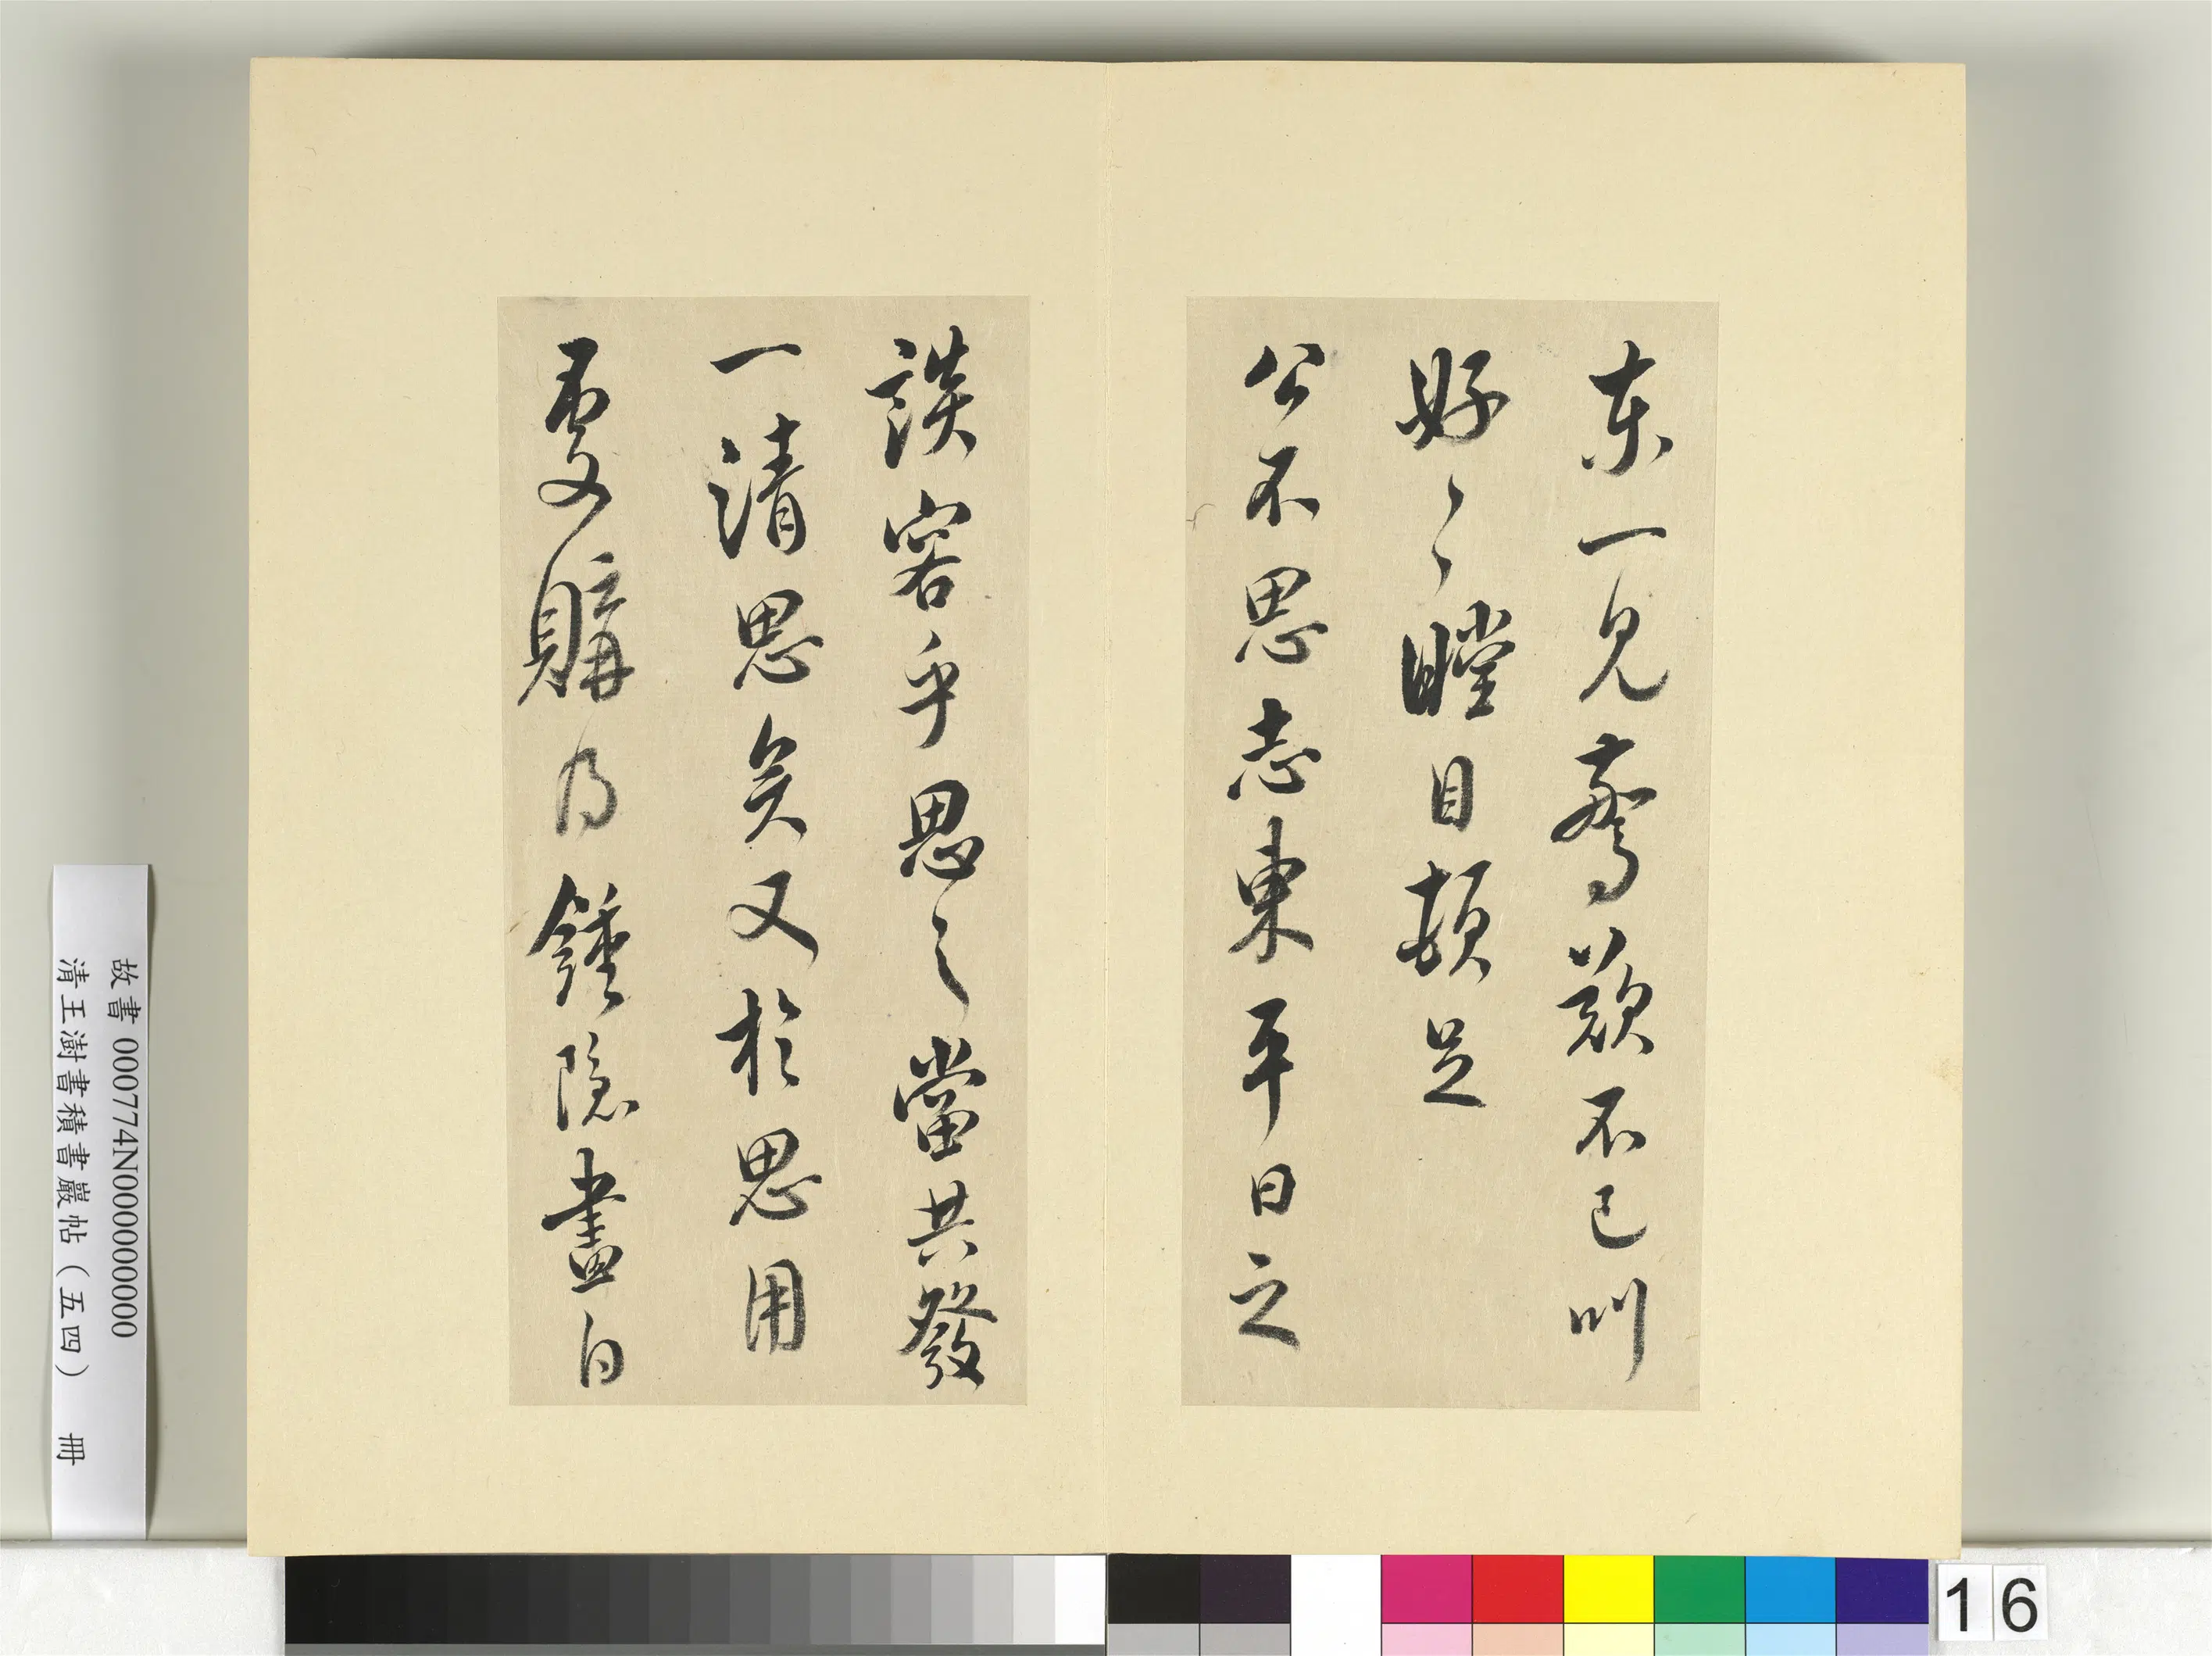 东一見驚歎不已叫
好〻瞠目頓足
公不思志東平日之
談客乎思之當共發
一清思矣又於思用
處購得鍾隱畫白
故書 000774N000000000
清王澍書積書巖帖（五四） 冊
16